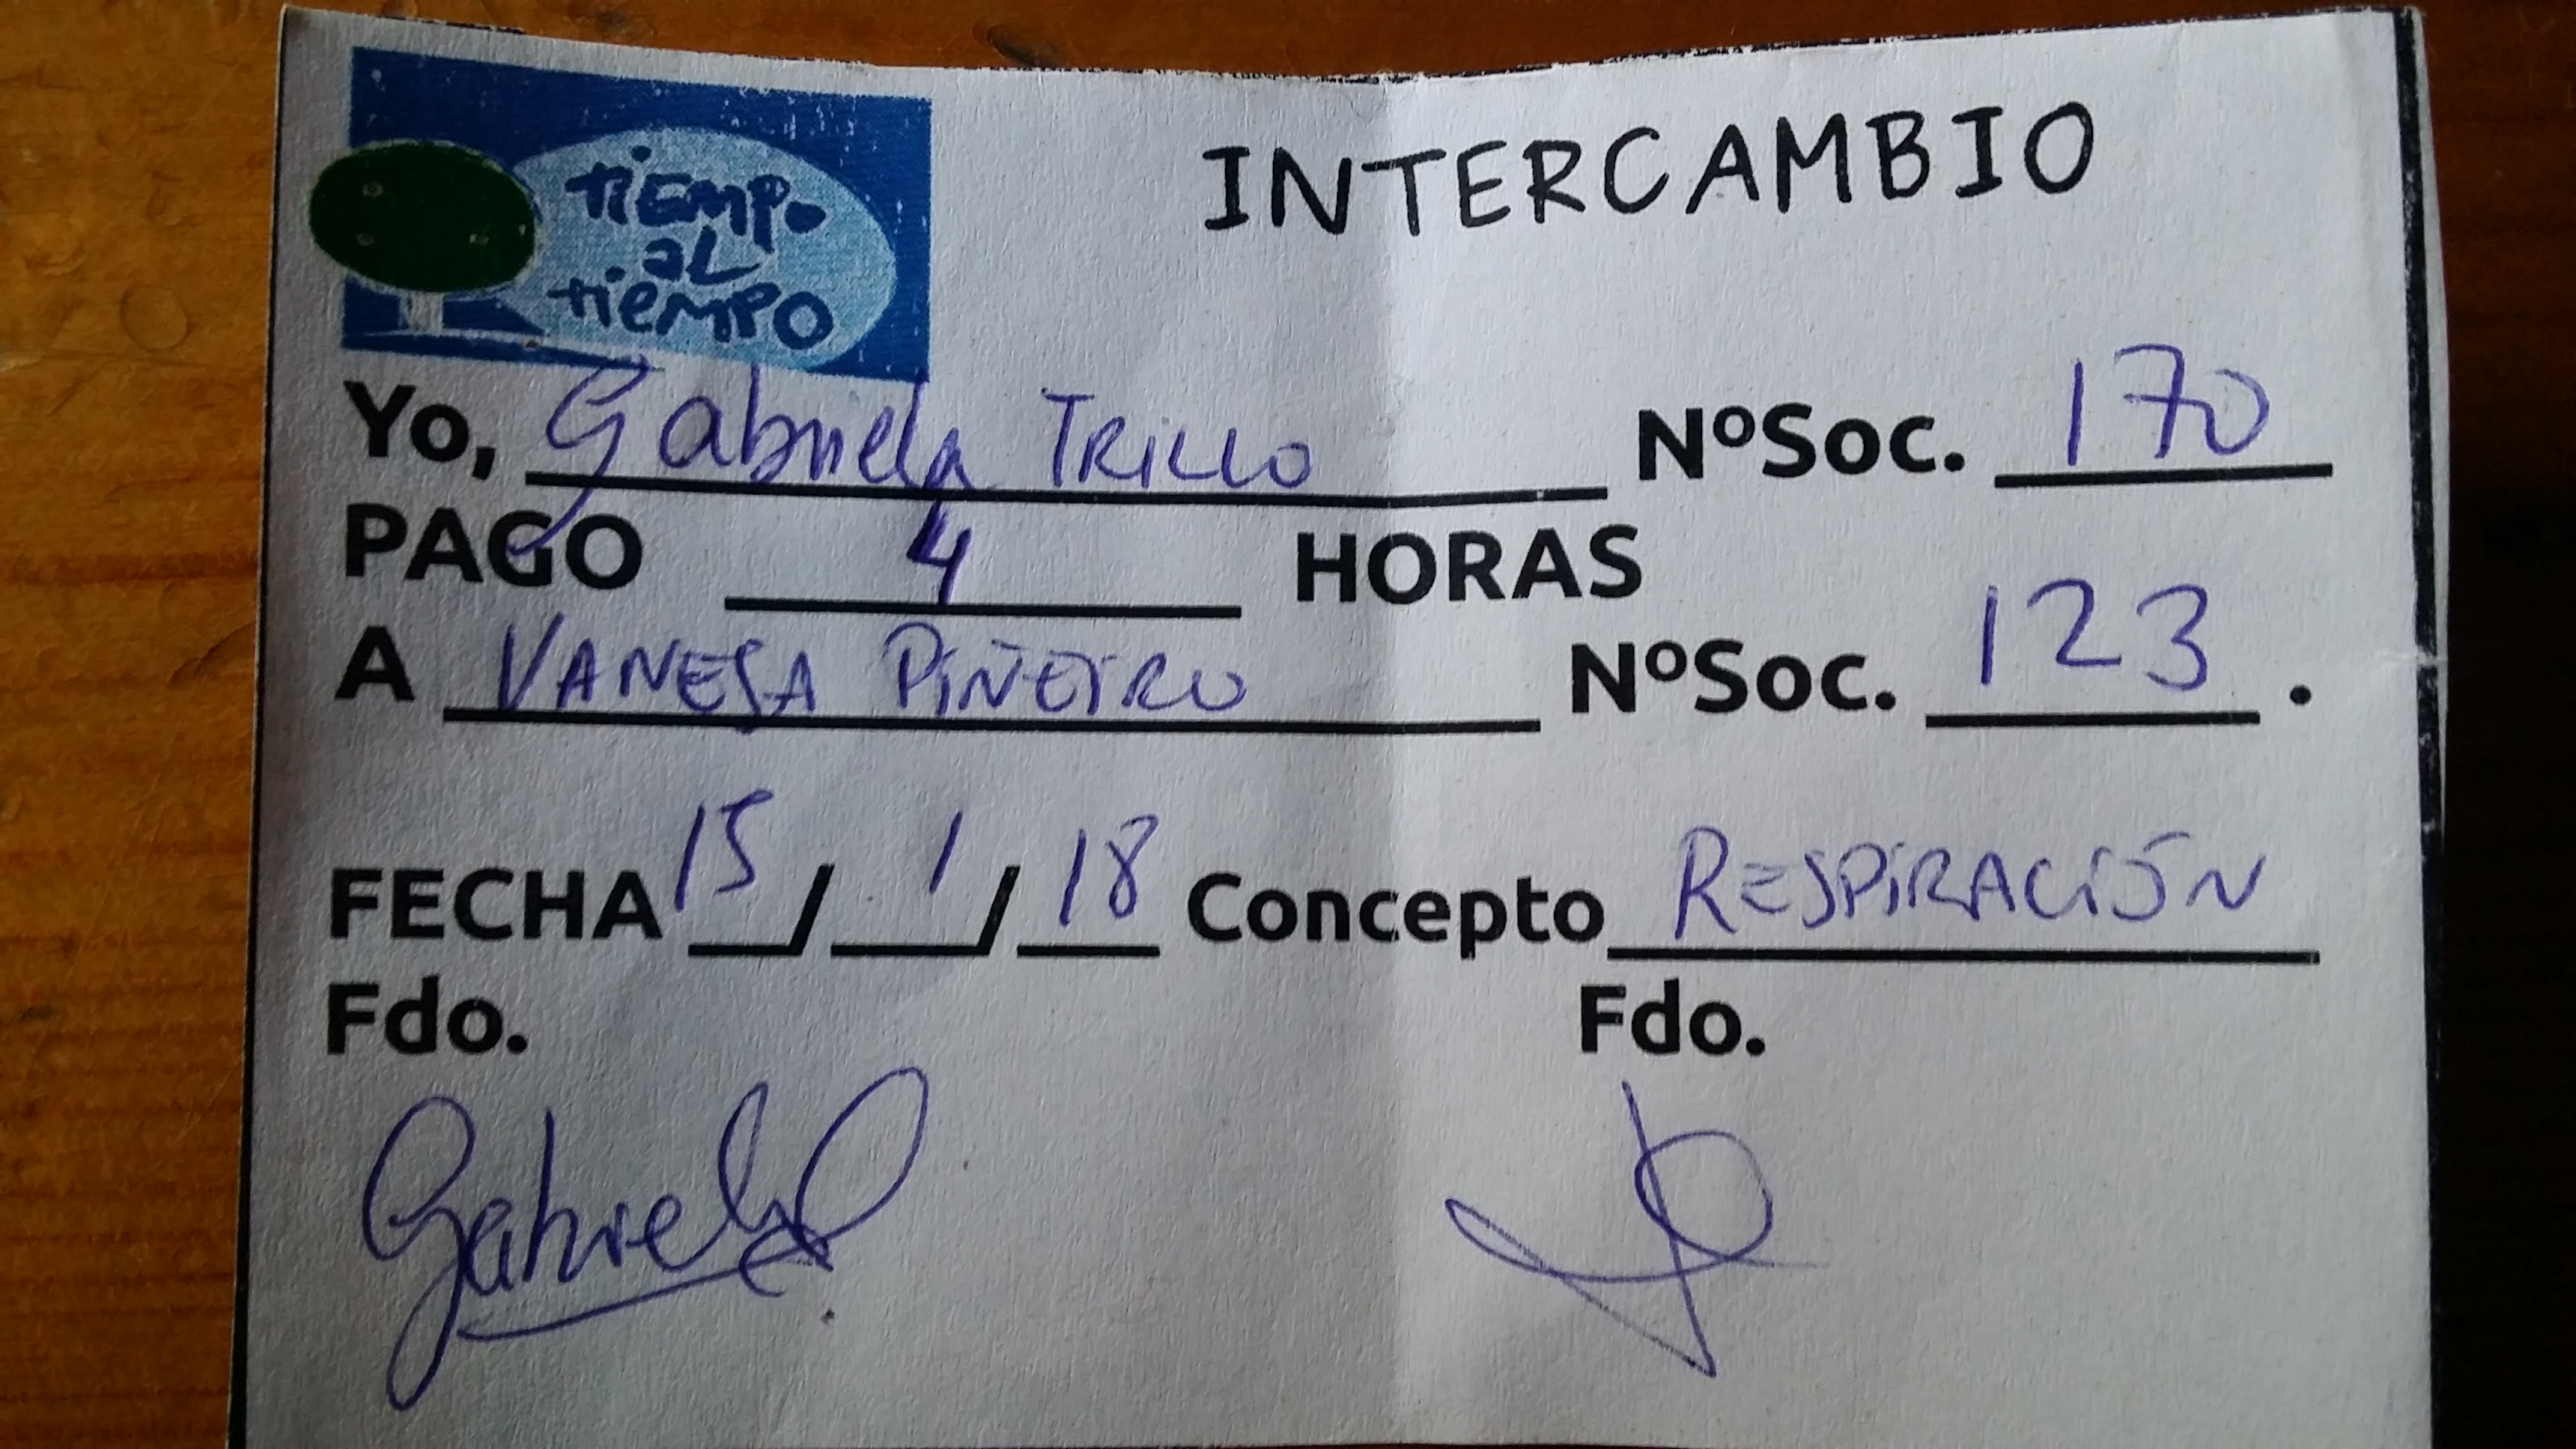 tiempo
al
tiempo
INTERCAMBIO
Yo, Gabriela TRILLO NºSoc. 170
PAGO 4 HORAS
A VANESA PIÑEIRO NºSoc. 123.
FECHA 15/1/18 Concepto RESPIRACIÓN
Fdo. Fdo.
Gabriela